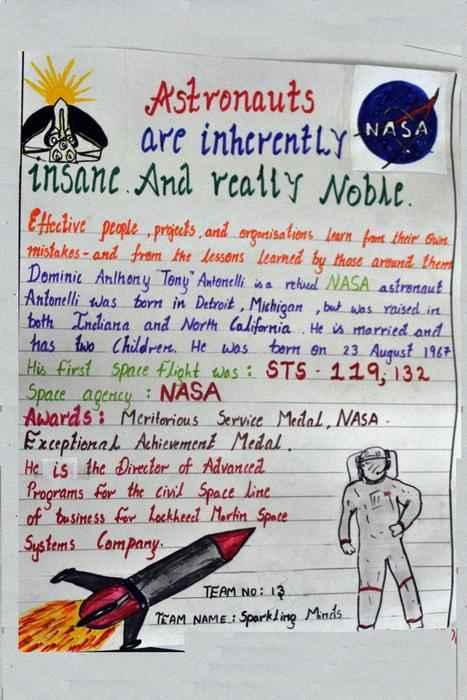 Astronauts
NASA
are inherently
insane. And really Noble.
Effective people, projects, and organisations learn from their own
mistakes - and from the lessons learned by those around them
Dominic Anthony "Tony" Antonelli is a retired NASA astronaut
Antonelli was born in Detroit, Michigan, but was raised in
both Indiana and North California. He is married and
has two Children. He was born on 23 August 1967
His first Space flight was : STS - 119, 132
Space agency : NASA
Awards : Meritorious Service Medal, NASA.
Exceptional Achievement Medal.
He is the Director of Advanced
Programs for the civil Space line
of business for Lockheed Martin Space
Systems Company.
TEAM NO: 13
TEAM NAME : Sparkling Minds